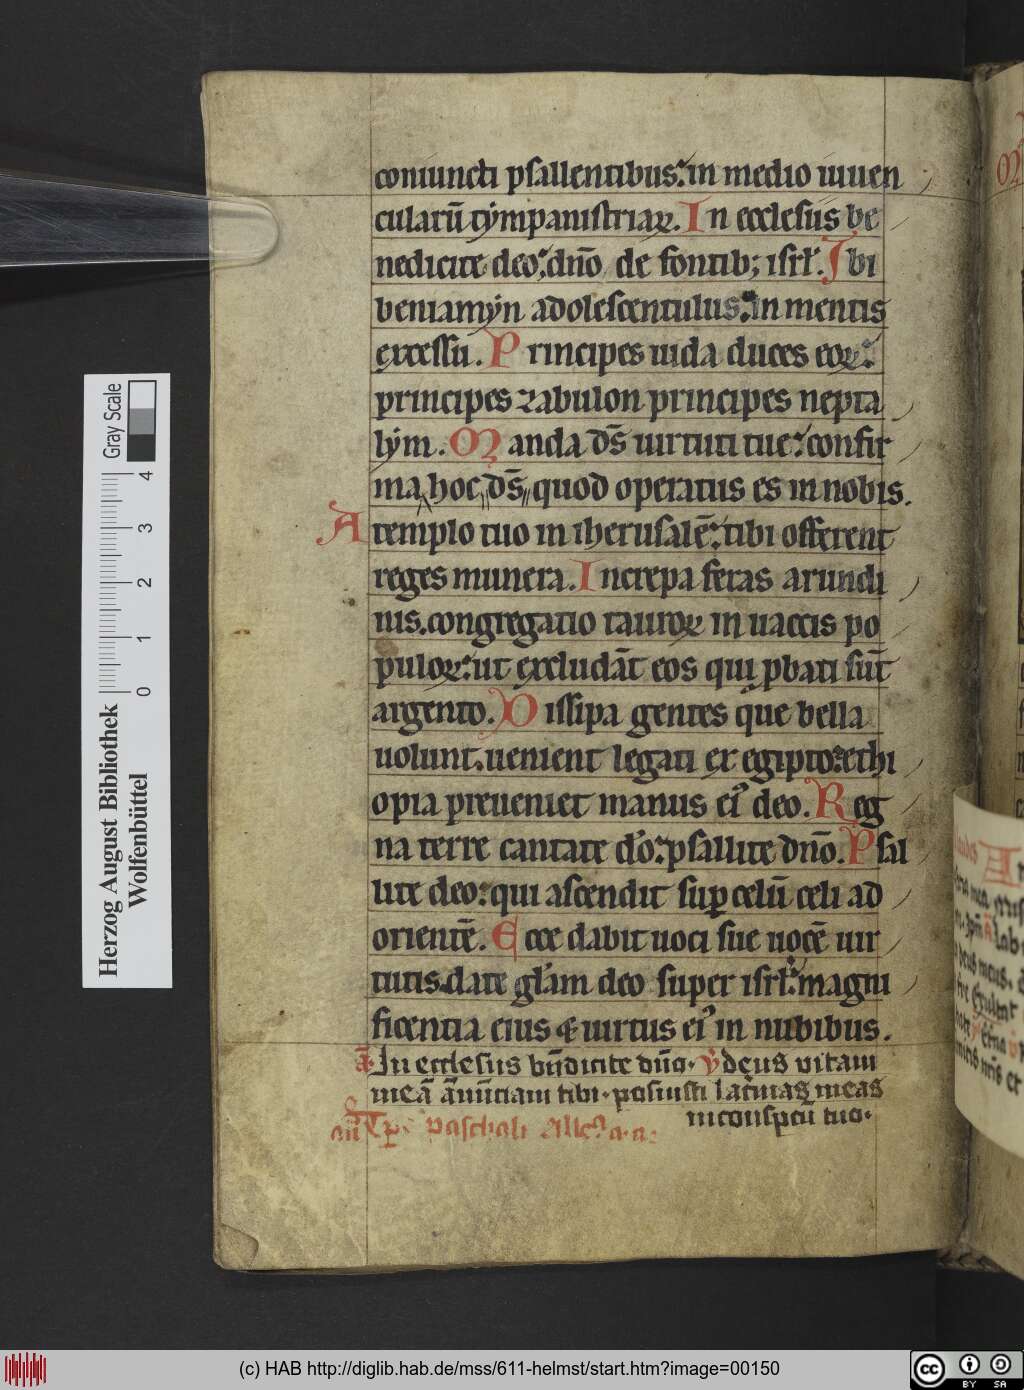 coniuncti psallentibus: in medio iuuen
cularū tẏmpanistriaꝝ. In ecclesiis be
nedicite deo: dn̄o de fontib; isrl̓. Ibi
beniamẏn adolescentulus: in mentis
excessu. Principes iuda duces eoꝝ:
principes zabulon principes nepta
lẏm. Manda ds̄ uirtuti tue: confir
ma hoc ds̄ quod operatus es in nobis.
A templo tuo in iherusalē: tibi offerent
reges munera. Increpa feras arundi
nis. congregatio tauroꝝ in uaccis po
puloꝝ: ut excludāt eos qui ꝓbati sūt
argento. Dissipa gentes que bella
uolunt. uenient legati ex egipto: ethi
opia preueniet manus ei᾿ deo. Reg
na terre cantate do: psallite dn̄o. Psal
lite deo: qui ascendit suꝑ celū celi ad
orientē. Ecce dabit uoci sue uocē uir
tutis. date gl̓am deo super isrl̓: magni
ficentia eius & uirtus ei᾿ in nubibus.
ā. In ecclesiis bn̄dicite dn̄o. ℣ deus vitam
meā ānūciaui tibi. posuisti lac̓mas meas
in conspc̄u tuo.
Tꝑe paschali All̓a.a.a.
Herzog August Bibliothek
Wolfenbüttel
Gray Scale
0 1 2 3 4
(c) HAB http://diglib.hab.de/mss/611-helmst/start.htm?image=00150
cc BY SA